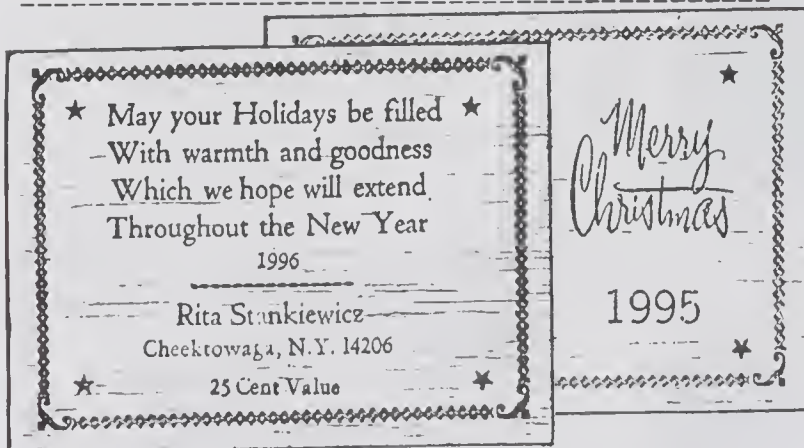 May your Holidays be filled
With warmth and goodness
Which we hope will extend
Throughout the New Year
1996
Rita Stankiewicz
Cheektowaga, N.Y. 14206
25 Cent Value
Merry
Christmas
1995